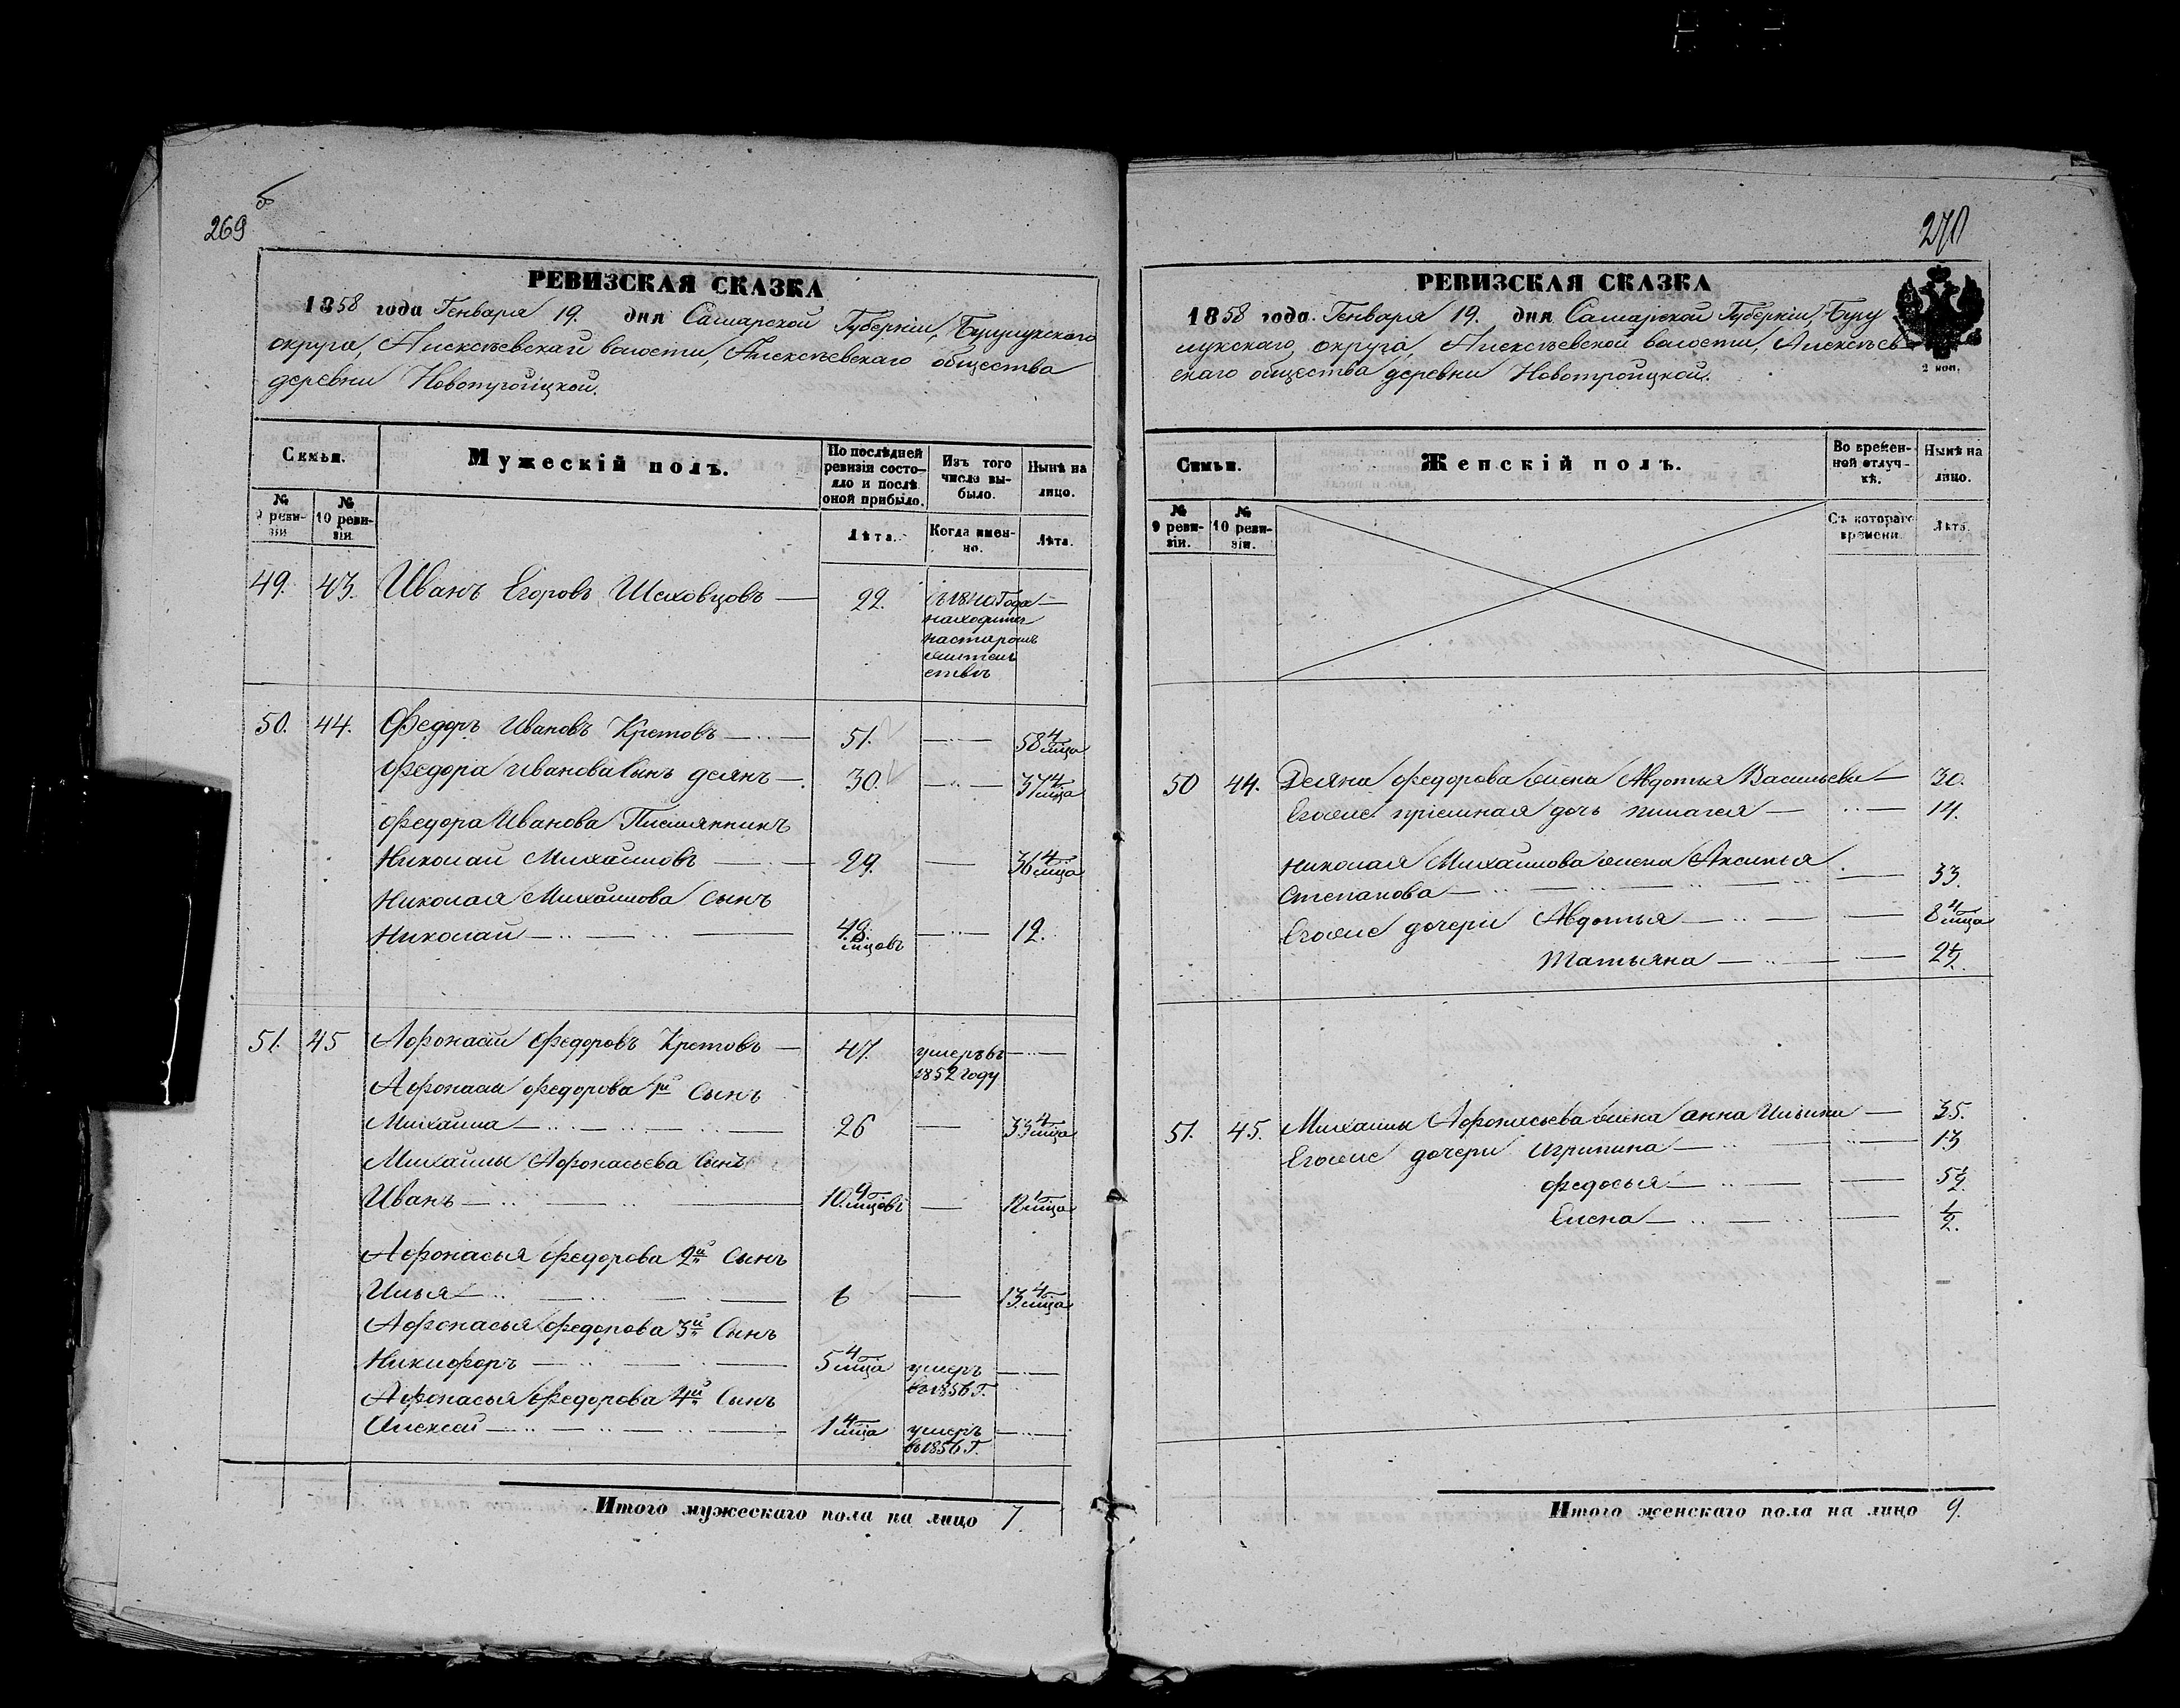 269
б
РЕВИЗСКАЯ СКАЗКА
1858 года Генваря 19. дня Самарской Губерніи, Бугурусланскаго
округа, Алексѣевской волости, Алексѣевскаго общества
деревни Новотроицкой.
Семьи.
Мужескій полъ.
По послѣдней ревизіи состояло и послѣ оной прибыло.
Изъ того числа выбыло.
Нынѣ на лицо.
№ 9 ревизіи.
№ 10 ревизіи.
Лѣта.
Когда именно.
Лѣта.
49. 43. Иванъ Егоровъ Шаховцовъ — 22. съ 1840 Года —
находится
на старом
жител
ствѣ
50. 44. Федоръ Ивановъ Кретовъ — 51. — 58 4/мца
Федора Иванова Сынъ Демянъ — 30. — 37 4/мца
Федора Иванова Племянникъ
Николай Михайловъ — 29. — 36 4/мца
Николая Михайлова Сынъ
Николай — 4 8/мцовъ — 12.
51. 45 Афонасий Федоровъ Кретовъ — 47. умеръ въ —
1852 году
Афонасья Федорова 1й Сынъ
Михайла — 26 — 33 4/мца
Михайлы Афонасьева Сынъ
Иванъ — 10 9/мцовъ — 12 1/мца
Афонасья Федорова 2й Сынъ
Илья — 6 — 13 4/мца
Афонасья Федорова 3й Сынъ
Никифоръ — 5 4/мца умеръ —
въ 1856 г.
Афонасья Федорова 4й Сынъ
Алексей — 1 4/мца умеръ —
въ 1856 г.
Итого мужескаго пола на лицо 7
270
РЕВИЗСКАЯ СКАЗКА
1858 года. Генваря 19. дня Самарской Губерніи, Бугу
округа, Алексѣевской волости, Алексѣев
скаго общества деревни Новотроицкой.
2 коп.
Семьи.
Женскій полъ.
Во временной отлучкѣ.
Нынѣ на лицо.
№ 9 ревизіи.
№ 10 ревизіи.
Съ котораго времени.
Лѣта.
50 44. Демяна Федорова жена Авдотья Васильева — 30.
Егоже приемная дочь Пилагея — 14.
Николая Михайлова жена Аксинья
Степанова — 33.
Егоже дочери Авдотья — 8 4/мца
Татьяна — 2 1/2.
51. 45. Михайлы Афонасьева жена Анна Ильина — 35.
Егоже дочери Агрипина — 13
Федосья — 5 1/2.
Елена — 1/2.
Итого женскаго пола на лицо 9.